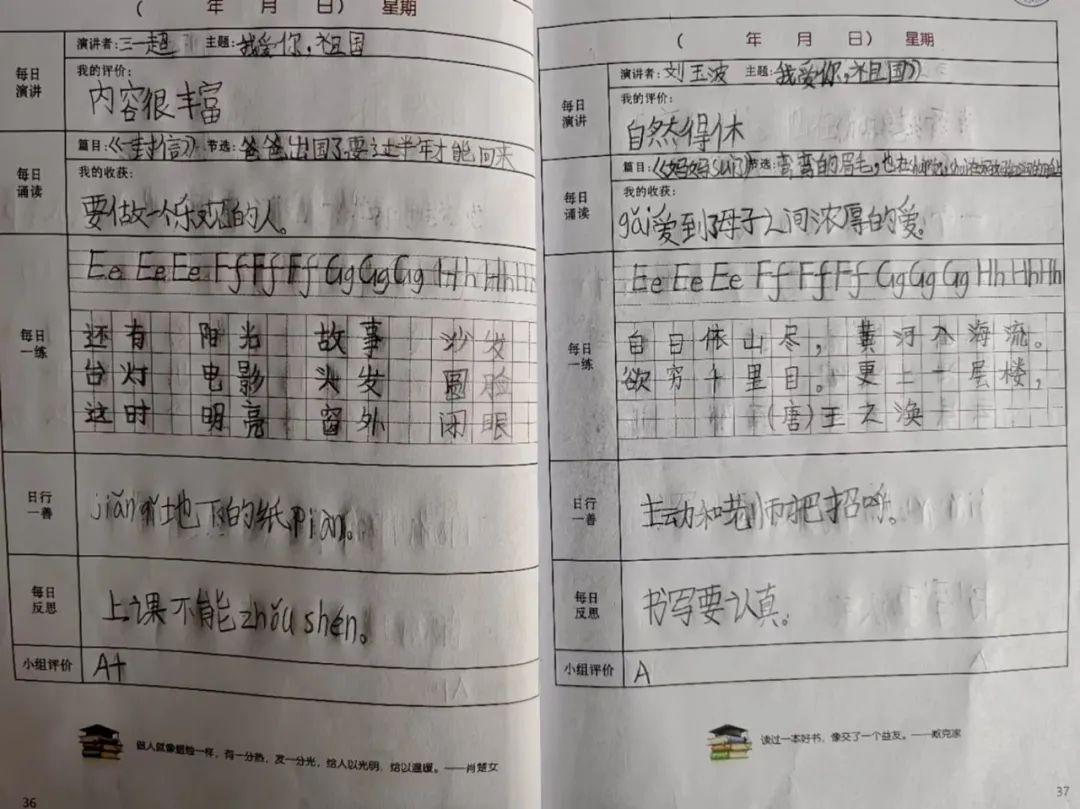 ( 年 月 日) 星期
每日演讲
演讲者:三一超 主题:我爱你,祖国
我的评价:
内容很丰富
每日诵读
篇目:《一封信》 节选:爸爸出国了要过半年才能回来
我的收获:
要做一个乐观的人。
每日一练
Ee Ee Ee Ff Ff Ff Gg Gg Gg Hh Hh Hh
还有 阳光 故事 沙发
台灯 电影 头发 圆脸
这时 明亮 窗外 闭眼
日行一善
jiǎn qǐ地下的纸piàn。
每日反思
上课不能zhǒu shén。
小组评价
A+
做人就像蜡烛一样,有一分热,发一分光,给人以光明,给以温暖。——肖楚女
36
( 年 月 日) 星期
每日演讲
演讲者:刘玉波 主题:我爱你,祖国》
我的评价:
自然得休
每日诵读
篇目:《妈妈睡了》节选:弯弯的眉毛,也在
我的收获:
gǎi爱到了母子之间浓厚的爱。
每日一练
Ee Ee Ee Ff Ff Ff Gg Gg Gg Hh Hh Hh
白日依山尽,黄河入海流。
欲穷千里目。更上一层楼,
(唐)王之涣
日行一善
主动和老师把招呼。
每日反思
书写要认真。
小组评价
A
读过一本好书,像交了一个益友。——臧克家
37